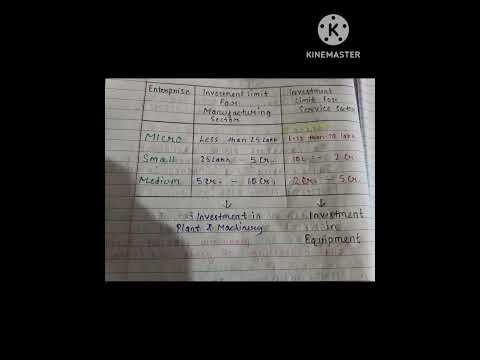 K
KINEMASTER
Enterprise
Investment limit
For
Manufacturing
Sector
Investment
Limit For
Service Sector
Micro
Less than 25 Lakh
Less than 10 lakh
Small
25 Lakh - 5 Cr.
10 L - 2 Cr
Medium
5 Cr. - 10 Cr.
2 Cr. - 5 Cr.
↓
Investment in
Plant & Machinery
↓
Investment
in
Equipment